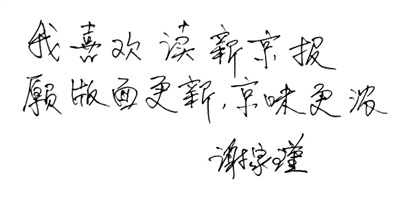 我喜欢读新京报
愿版面更新,京味更浓
谢家瑾